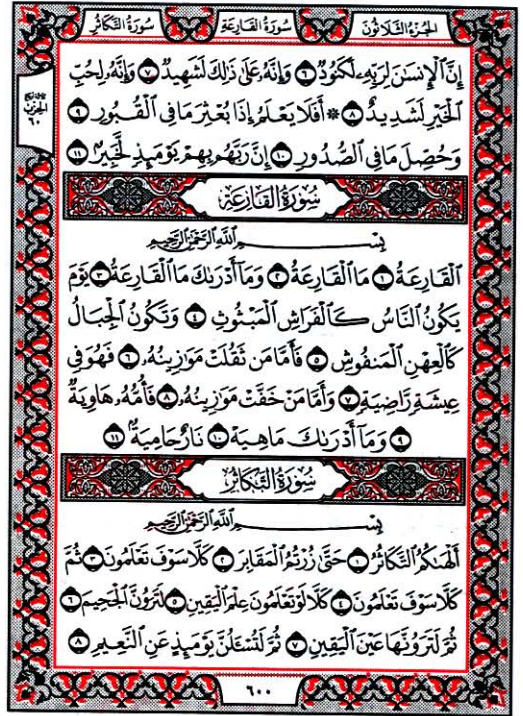 الجزء الثلاثون
سورة القارعة
سورة التكاثر
إِنَّ ٱلْإِنسَٰنَ لِرَبِّهِۦ لَكَنُودٌ ٦ وَإِنَّهُۥ عَلَىٰ ذَٰلِكَ لَشَهِيدٌ ٧ وَإِنَّهُۥ لِحُبِّ
ٱلْخَيْرِ لَشَدِيدٌ ٨ ۞ أَفَلَا يَعْلَمُ إِذَا بُعْثِرَ مَا فِى ٱلْقُبُورِ ٩
وَحُصِّلَ مَا فِى ٱلصُّدُورِ ١٠ إِنَّ رَبَّهُم بِهِمْ يَوْمَئِذٍ لَّخَبِيرٌۢ ١١
الحزب
٦٠
سُورَةُ القَارِعَة
بِسْمِ ٱللَّهِ ٱلرَّحْمَٰنِ ٱلرَّحِيمِ
ٱلْقَارِعَةُ ١ مَا ٱلْقَارِعَةُ ٢ وَمَآ أَدْرَىٰكَ مَا ٱلْقَارِعَةُ ٣ يَوْمَ
يَكُونُ ٱلنَّاسُ كَٱلْفَرَاشِ ٱلْمَبْثُوثِ ٤ وَتَكُونُ ٱلْجِبَالُ
كَٱلْعِهْنِ ٱلْمَنفُوشِ ٥ فَأَمَّا مَن ثَقُلَتْ مَوَٰزِينُهُۥ ٦ فَهُوَ فِى
عِيشَةٍ رَّاضِيَةٍ ٧ وَأَمَّا مَنْ خَفَّتْ مَوَٰزِينُهُۥ ٨ فَأُمُّهُۥ هَاوِيَةٌ
٩ وَمَآ أَدْرَىٰكَ مَا هِيَهْ ١٠ نَارٌ حَامِيَةٌۢ ١١
سُورَةُ التَّكَاثُر
بِسْمِ ٱللَّهِ ٱلرَّحْمَٰنِ ٱلرَّحِيمِ
أَلْهَىٰكُمُ ٱلتَّكَاثُرُ ١ حَتَّىٰ زُرْتُمُ ٱلْمَقَابِرَ ٢ كَلَّا سَوْفَ تَعْلَمُونَ ٣ ثُمَّ
كَلَّا سَوْفَ تَعْلَمُونَ ٤ كَلَّا لَوْ تَعْلَمُونَ عِلْمَ ٱلْيَقِينِ ٥ لَتَرَوُنَّ ٱلْجَحِيمَ ٦
ثُمَّ لَتَرَوُنَّهَا عَيْنَ ٱلْيَقِينِ ٧ ثُمَّ لَتُسْـَٔلُنَّ يَوْمَئِذٍ عَنِ ٱلنَّعِيمِ ٨
٦٠٠